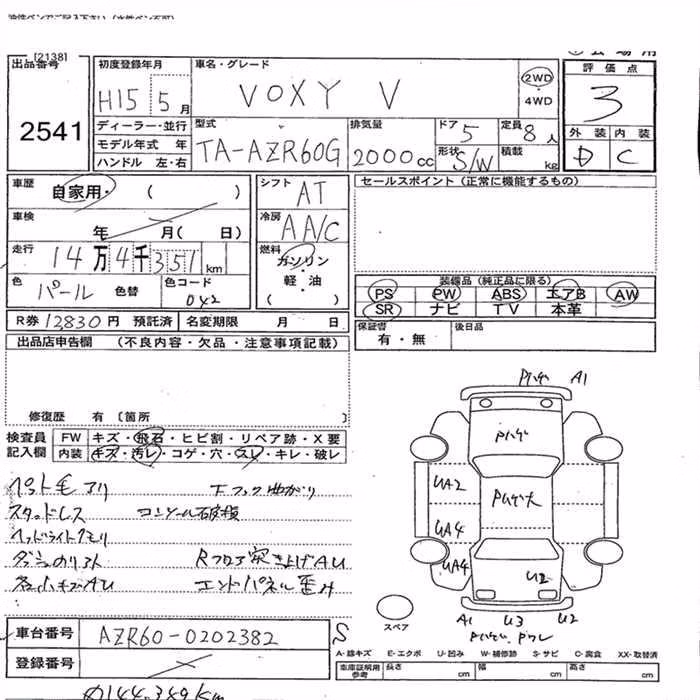 [2138]
出品番号
2541
初度登録年月
H15 5月
車名・グレード
VOXY V
2WD
・
4WD
評価点
3
外装 内装
D C
ディーラー・並行
モデル年式 年
ハンドル 左・右
型式
TA-AZR60G
排気量
2000cc
ドア
5
形状
S/W
定員
8人
積載
kg
車歴
自家用・( )
車検
年 月( 日)
走行
14万4千351km
色
パール 色替
色コード
042
シフト
AT
冷房
AA/C
燃料
ガソリン
・
軽・油
( )
セールスポイント(正常に機能するもの)
装備品(純正品に限る)
PS PW ABS エアB AW
SR ナビ TV 本革
R券 12830円 預託済 名変期限 月 日
保証書
有・無
後日品
出品店申告欄 (不良内容・欠品・注意事項記載)
修復歴 有〔箇所 〕
検査員
記入欄
FW キズ・飛石・ヒビ割・リペア跡・X要
内装 キズ・汚レ・コゲ・穴・スレ・キレ・破レ
ペット毛アリ 下フック曲がり
スタッドレス コンソール破損
ヘッドライトクモリ
Rフロア突き上げAU
小キズAU エンドパネル歪み
A1
UA2
UA4
UA4
U2
A1 U3 U2
スペア
S
車台番号
AZR60-0202382
登録番号
A-線キズ E-エクボ U-凹み W-補修跡 S-サビ C-腐食 XX-取替済
車庫証明用
参考
長さ cm 幅 cm 高さ cm
144,349Km